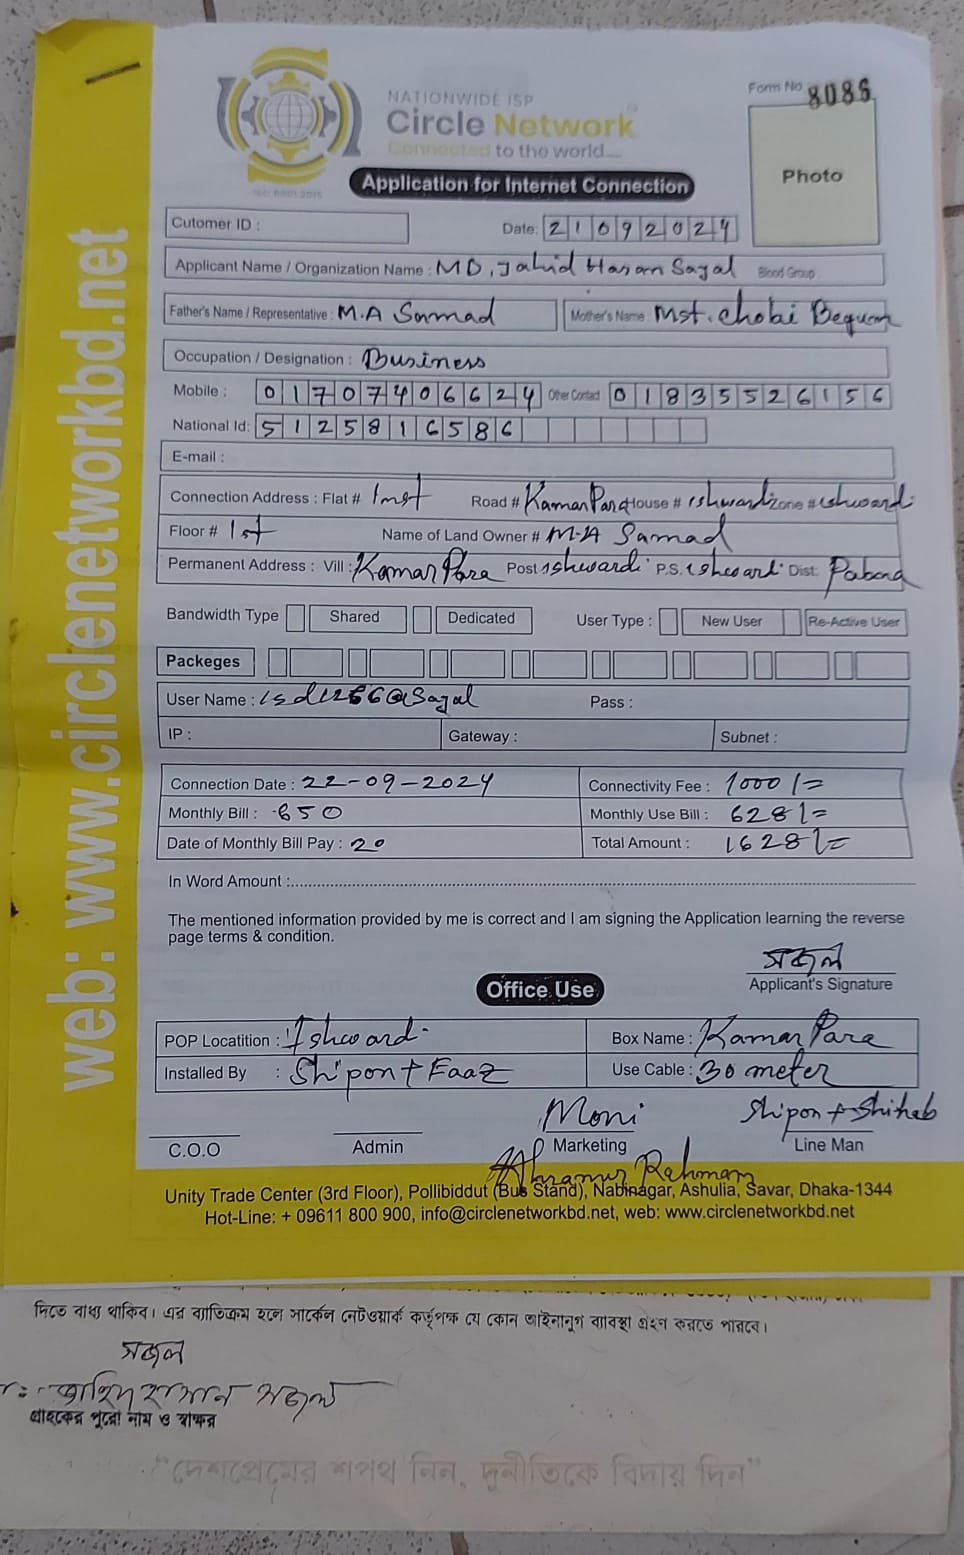 Form No 8086
NATIONWIDE ISP
Circle Network
Connected to the world....
Photo
ISO 9001:2015
Application for Internet Connection
Cutomer ID :
Date: 21092024
Applicant Name / Organization Name : MD. Jahid Hasan Sajal Blood Group
Father's Name / Representative : M.A Samad Mother's Name : Mst. Chobi Begum
Occupation / Designation : Business
Mobile : 01707406624 Other Contact 01835526156
National Id: 5125816586
E-mail :
Connection Address : Flat # 1mst Road # Kamar Para House # ishwardi Zone # ishwardi
Floor # 1st Name of Land Owner # M.A Samad
Permanent Address : Vill : Kamar Para Post ishwardi P.S. ishwardi Dist: Pabna
Bandwidth Type Shared Dedicated User Type : New User Re-Active User
Packeges
User Name : isd1266@Sajal Pass :
IP : Gateway : Subnet :
Connection Date : 22-09-2024 Connectivity Fee : 1000/=
Monthly Bill : 650 Monthly Use Bill : 628/=
Date of Monthly Bill Pay : 20 Total Amount : 1628/=
In Word Amount :
The mentioned information provided by me is correct and I am signing the Application learning the reverse
page terms & condition.
সজল
Applicant's Signature
Office Use
POP Locatition : Ishwardi Box Name : Kamar Para
Installed By : Shipon + Faaz Use Cable : 30 meter
Moni Shipon + Shihab
C.O.O Admin Marketing Line Man
Rahman
Unity Trade Center (3rd Floor), Pollibiddut (Bus Stand), Nabinagar, Ashulia, Savar, Dhaka-1344
Hot-Line: + 09611 800 900, info@circlenetworkbd.net, web: www.circlenetworkbd.net
web: www.circlenetworkbd.net
দিতে বাধ্য থাকিব। এর ব্যতিক্রম হলে সার্কেল নেটওয়ার্ক কর্তৃপক্ষ যে কোন আইনানুগ ব্যবস্থা গ্রহণ করতে পারবে।
সজল
জাহিদ হাসান সজল
গ্রাহকের পুরো নাম ও স্বাক্ষর
"দেশপ্রেমের শপথ নিন, দুর্নীতিকে বিদায় দিন"